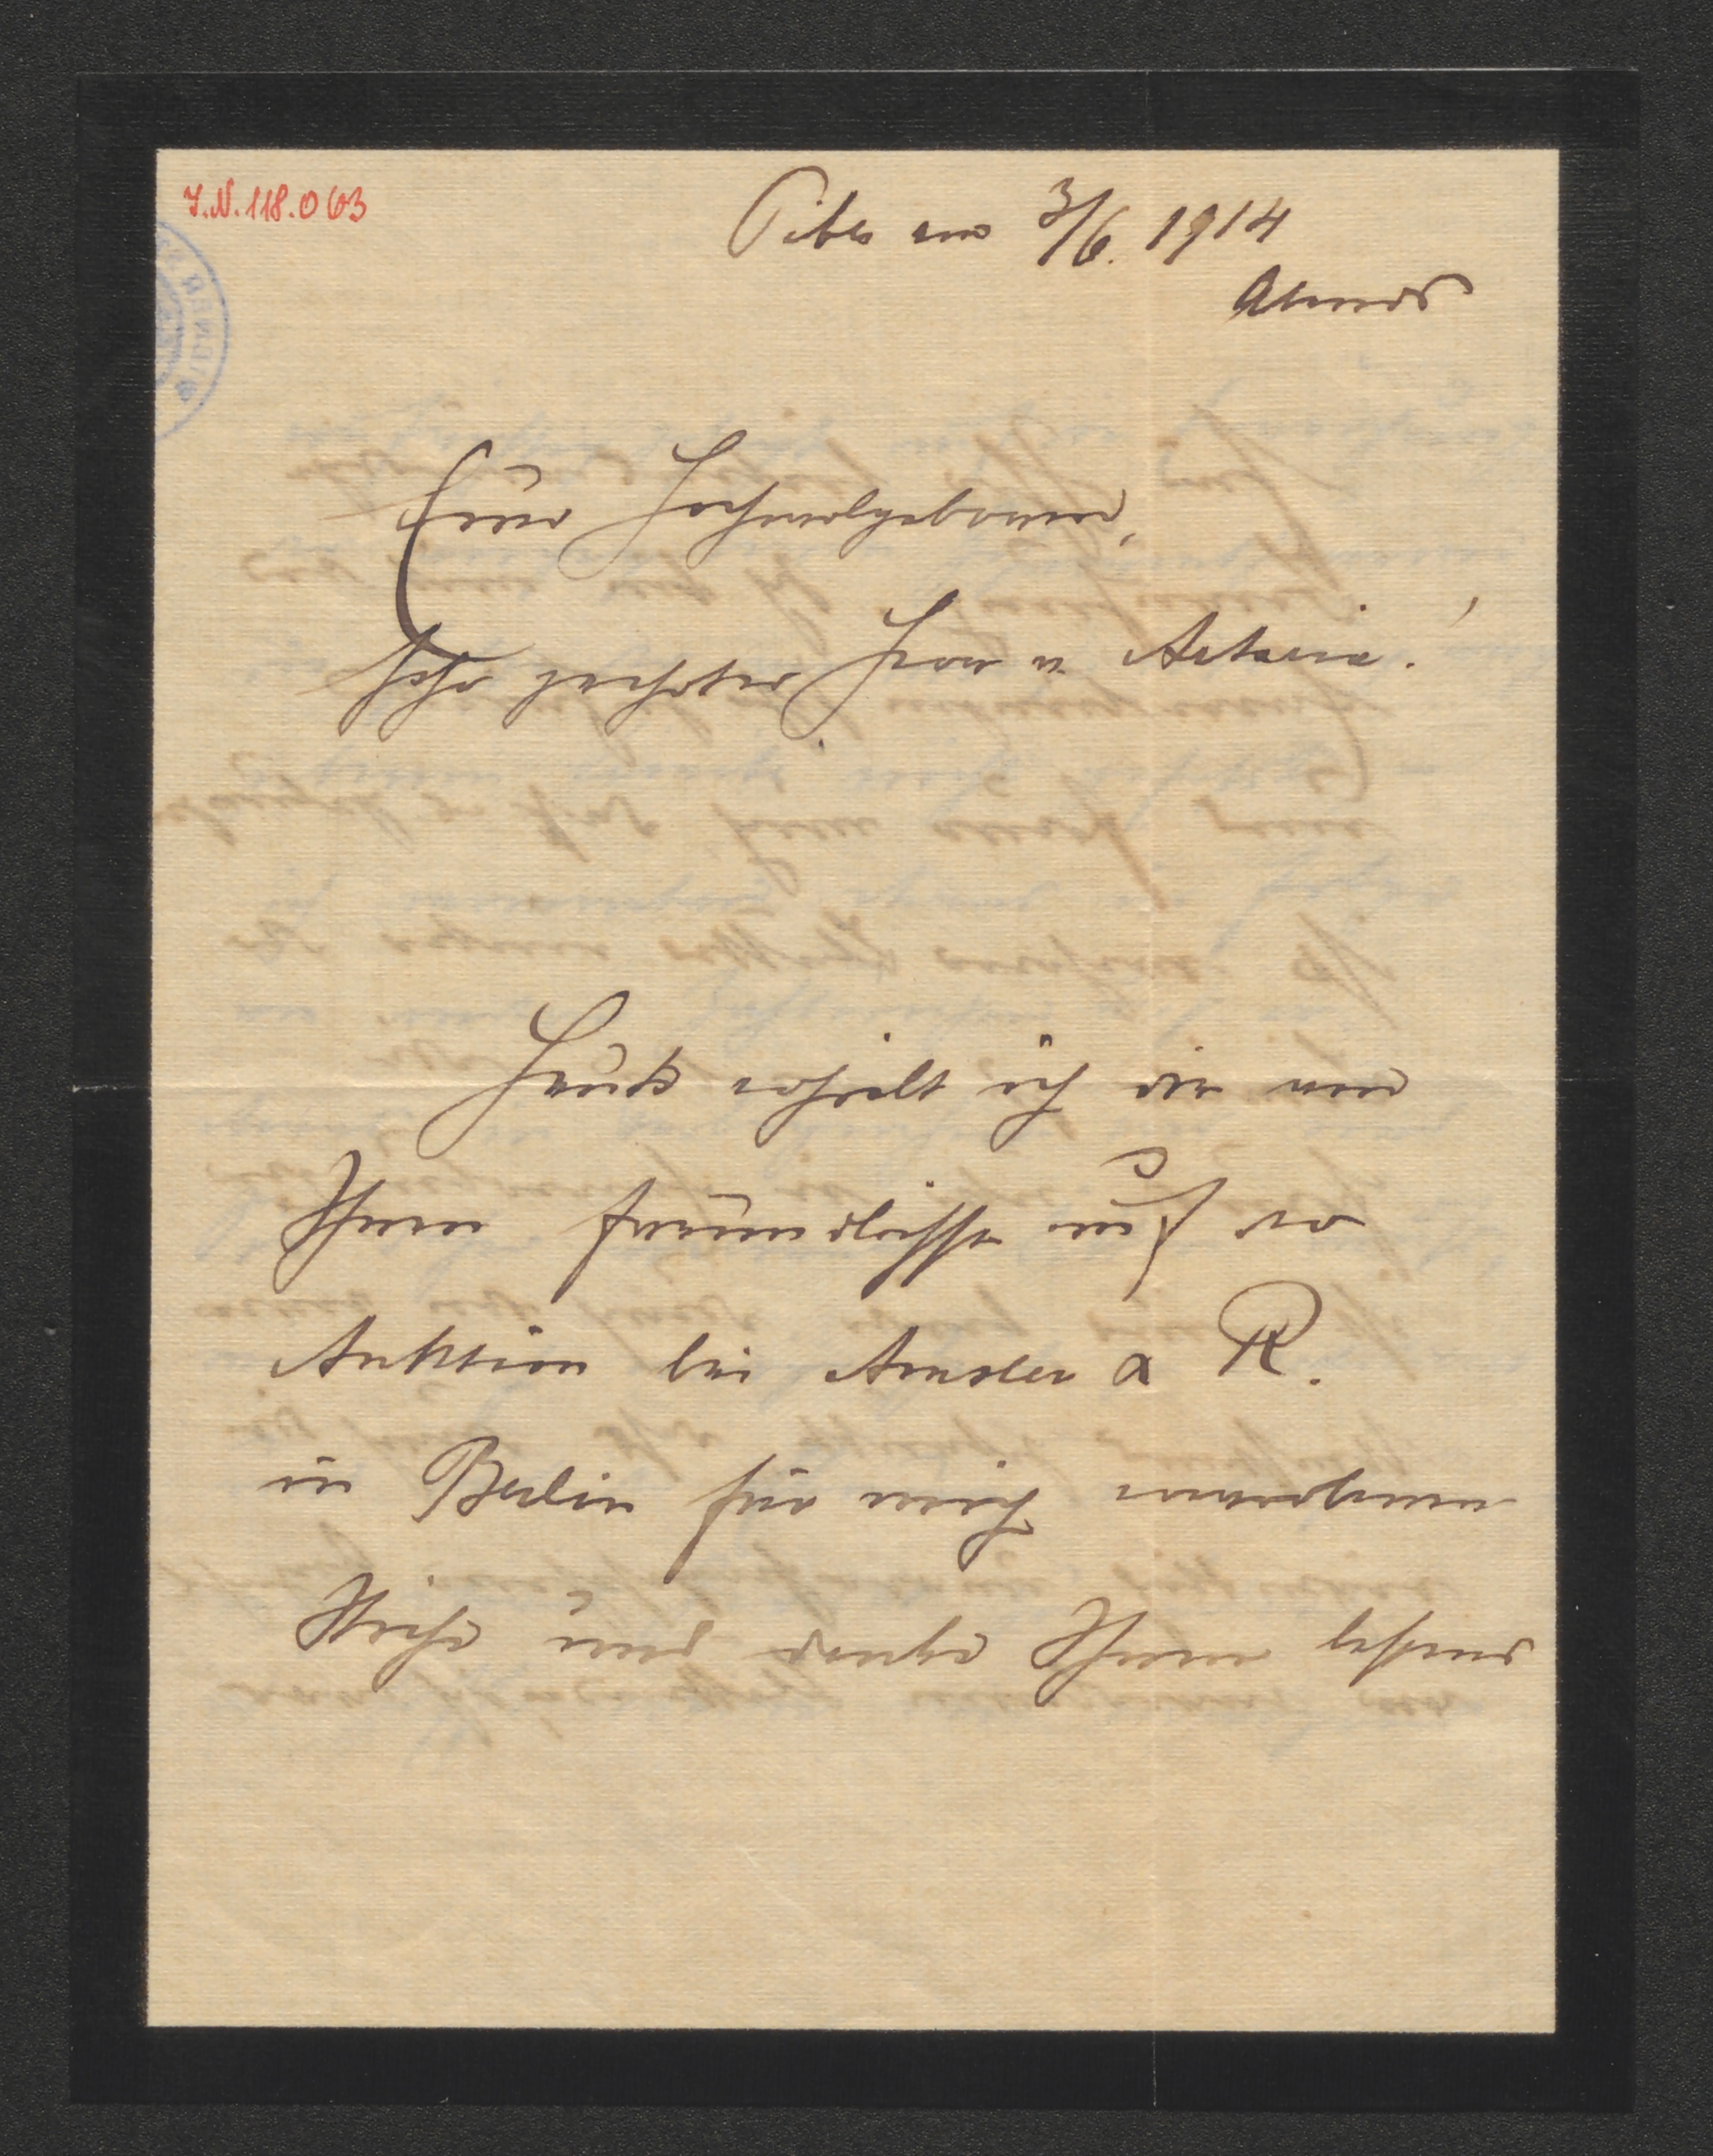 I.N. 118.063
Piber am 3/6. 1914
Abends
Euer Hochwolgeboren,
Sehr geehrter Herr v. Artaria!
Heute erhielt ich die von
Ihnen freundlichst auf der
Auktion bei Amsler & R.
in Berlin für mich erworbenen
Stiche und danke Ihnen bestens